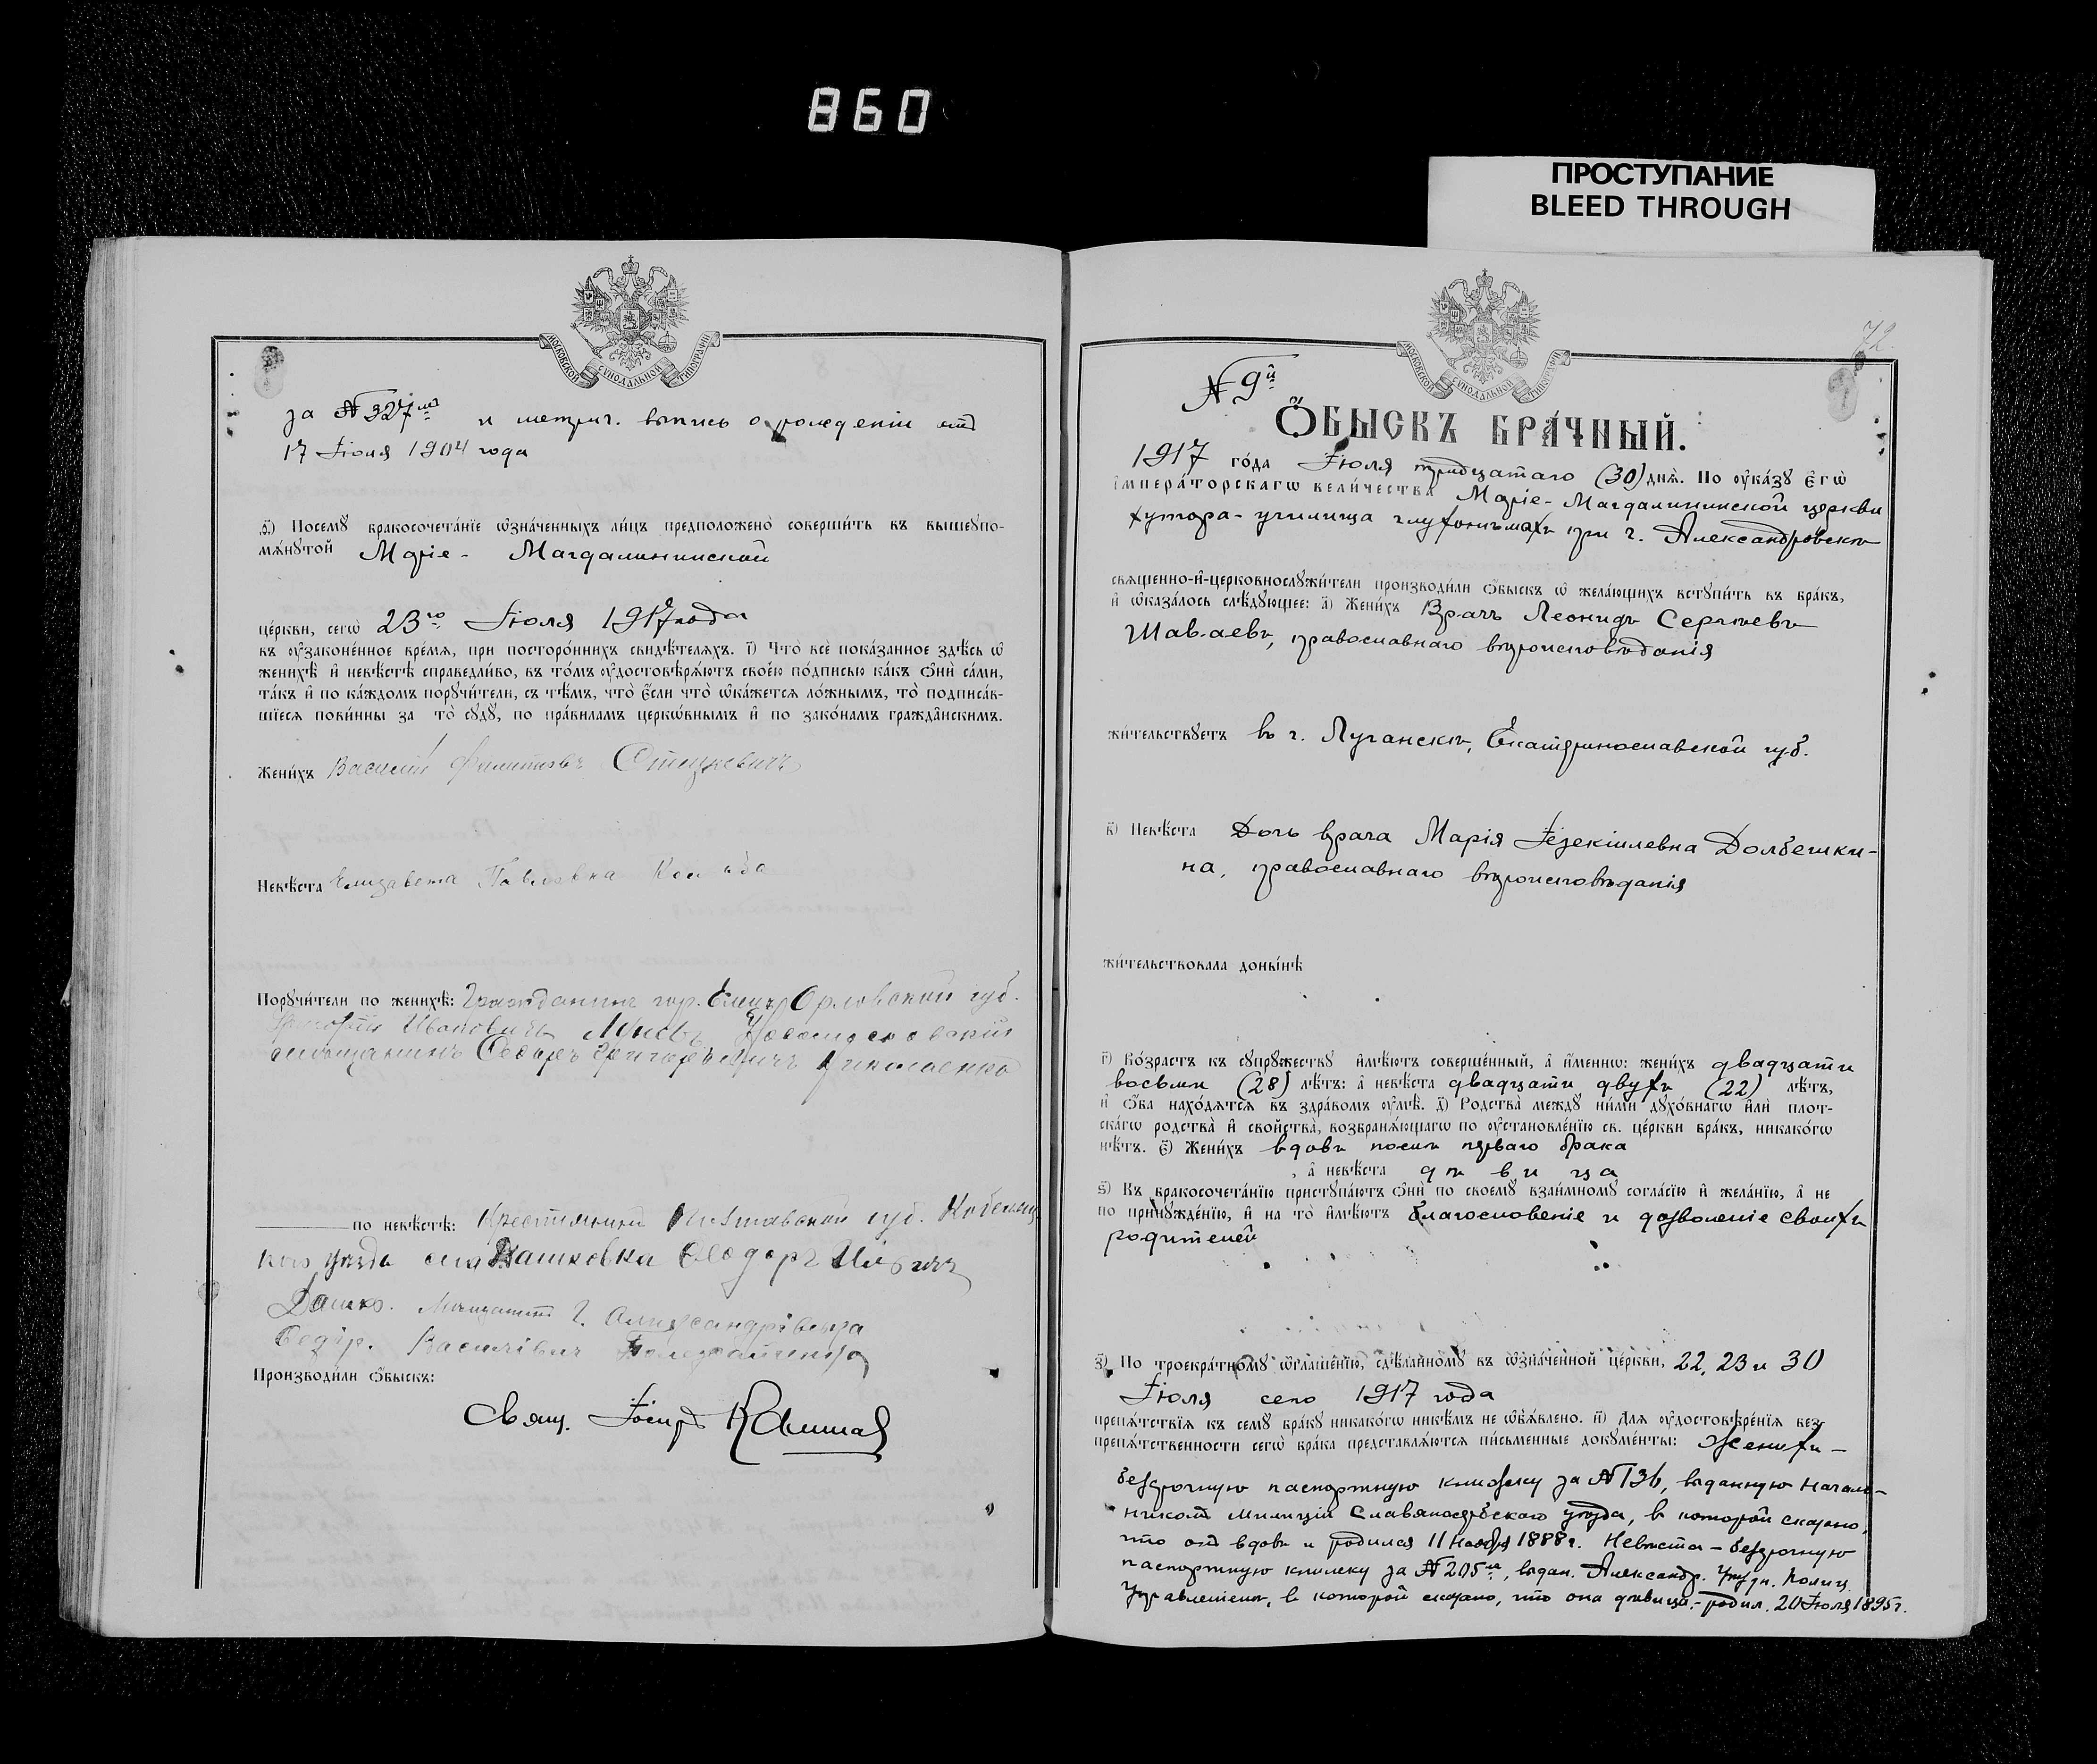 860
ПРОСТУПАНИЕ
BLEED THROUGH
МОСКОВСКОЙ СѴНОДАЛЬНОЙ ТИПОГРАФІИ
за № 327мъ и метрич. выпись о рожденіи отъ
17 Іюля 1904 года
Посемꙋ бракосочета́нїе ѡ҆зна́ченныхъ ли́цъ предположено̀ соверши́ть въ вышеꙋпо-
мѧ́нꙋтой Маріе- Магдалининской
це́ркви, сегѡ̀ 23го Іюля 1917 года
въ ᲂу҆зако́ненное вре́мѧ, при посторо́ннихъ свидѣ́телѧхъ. і҃) Что̀ всѐ пока́занное здѣ́сь ѡ҆
женихѣ̀ и҆ невѣ́стѣ справедли́во, въ то́мъ ᲂу҆достовѣрѧ́ютъ свое́ю по́дписью ка́къ ѻ҆нѝ са́ми,
та́къ и҆ по ка́ждомъ порꙋчи́тели, съ тѣ́мъ, что̀ є҆́сли что̀ ѡ҆ка́жетсѧ ло́жнымъ, то̀ подписа́в-
шїесѧ пови́нны за то̀ сꙋдꙋ̀, по пра́виламъ церкѡ́внымъ и҆ по зако́намъ гражда̂нскимъ.
Жени́хъ Василій Филиповъ Стецкевичъ
Невѣ́ста Елизавета Павловна
Порꙋчи́тели по женихѣ̀: Гражданинъ гор. Елец Орловской губ.
Ивановичъ
Ѳедоръ Григорьевичъ
по невѣ́стѣ: Крестьянинъ Полтавской губ.
уѣзда села Пашковка Ѳеодоръ
Дашко. г. Александрівська
Федір. Васильівич
Производи́ли ѻ҆́быскъ:
Свящ. Іосифъ
72.
МОСКОВСКОЙ СѴНОДАЛЬНОЙ ТИПОГРАФІИ
№ 9й
Ѻ҆́БЫСКЪ БРА́ЧНЫЙ.
1917 го́да Іюля тридцатаго (30) днѧ̀. По ᲂу҆ка́зꙋ Є҆гѡ̀
І҆мпера́торскагѡ вели́чества Маріе-Магдалининской церкви
хутора-училища глухонѣмыхъ при г. Александровскѣ
свѧще́нно-и҆-церковнослꙋжи́тели производи́ли ѻ҆́быскъ ѡ҆ жела́ющихъ встꙋпи́ть въ бра́къ,
и҆ ѡ҆каза́лось слѣ́дꙋющее: а҃) Жени́хъ Врачъ Леонидъ Сергѣевъ
Шаваевъ, православнаго вѣроисповѣданія
жи́тельствꙋетъ въ г. Луганскѣ, Екатеринославской губ.
в҃) Невѣ́ста Дочь врача Марія Іезекіилевна Долбешки-
на, православнаго вѣроисповѣданія
жи́тельствовала доны́нѣ
г҃) Во́зрастъ къ сꙋпрꙋ́жествꙋ и҆мѣ́ютъ соверше́нный, а҆ и҆́менно: жени́хъ двадцати
восьми (28) лѣ́тъ: а҆ невѣ́ста двадцати двухъ (22) лѣ́тъ,
и҆ ѻ҆́ба нахо́дѧтсѧ въ здра́вомъ ᲂу҆мѣ̀. д҃) Родства̀ междꙋ̀ ни́ми дꙋхо́внагѡ и҆лѝ плот-
ска́гѡ родства̀ и҆ сво́йства, возбранѧ́ющагѡ по ᲂу҆становле́нїю св. це́ркви бра́къ, никако́гѡ
нѣ́тъ. є҃) Жени́хъ вдовъ послѣ перваго брака
, а҆ невѣ́ста дѣвица
ѕ҃) Къ бракосочета́нїю пристꙋпа́ютъ ѻ҆нѝ по своемꙋ̀ взаи́мномꙋ согла́сїю и҆ жела́нїю, а҆ не
по принꙋжде́нїю, и҆ на то̀ и҆мѣ́ютъ благословеніе и дозволеніе своихъ
родителей
з҃) По троекра́тномꙋ ѡ҆глаше́нїю, сдѣ́ланномꙋ въ ѡ҆зна́ченной це́ркви, 22, 23 и 30
Іюля сего 1917 года
препѧ́тствїѧ къ семꙋ̀ бра́кꙋ никако́гѡ никѣ́мъ не ѡ҆б̾ѧ́влено. и҃) Длѧ̀ ᲂу҆достовѣре́нїѧ без̾
препѧ́тственности сегѡ̀ бра́ка представлѧ́ютсѧ пи́сьменные докꙋме́нты: Женихъ –
безсрочную паспортную книжку за № 136, выданную Началь-
никомъ Милиціи Славяносербскаго уѣзда, в которой сказано,
что онъ вдовъ и родился 11 Ноября 1888 г. Невѣста – безсрочную
паспортную книжку за № 205мъ, выдан. Александр. Уѣздн. Полиц.
Управленіемъ, в которой сказано, что она дѣвица – родил. 20 Іюля 1895 г.